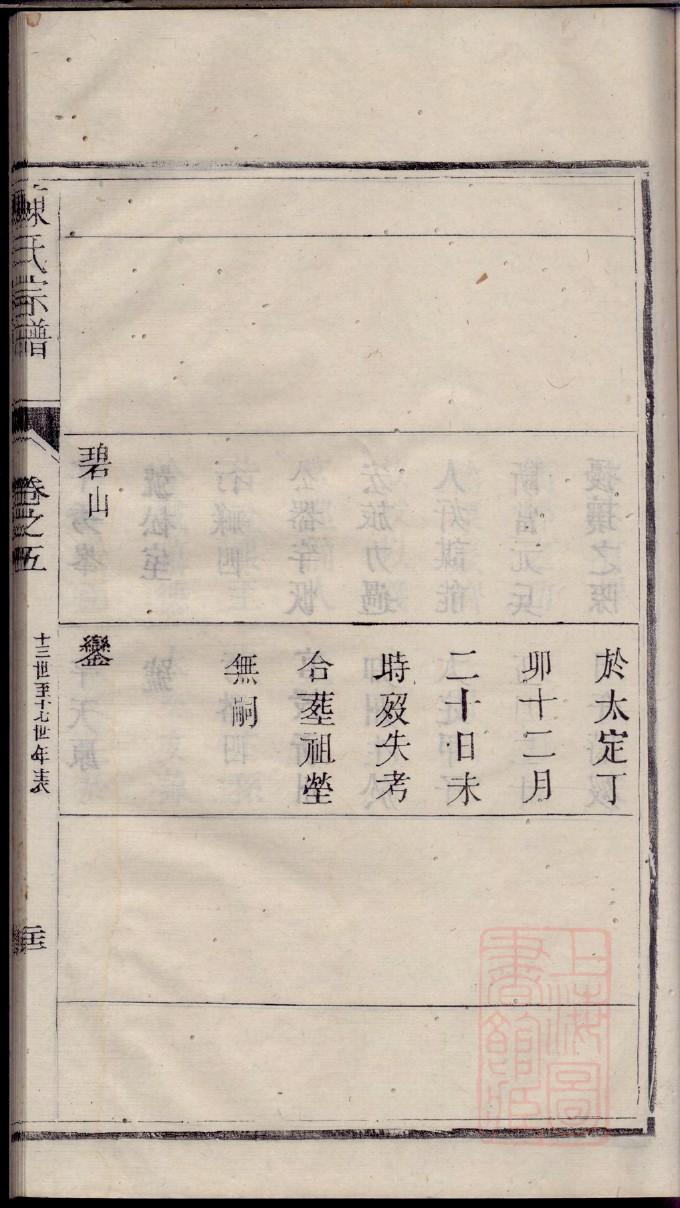 於太定丁
卯十二月
二十日未
時歿失考
合塟祖塋
無嗣
碧山
鑾
陳氏宗譜
卷之五
十三世至十七世年表
上海圖
書館藏